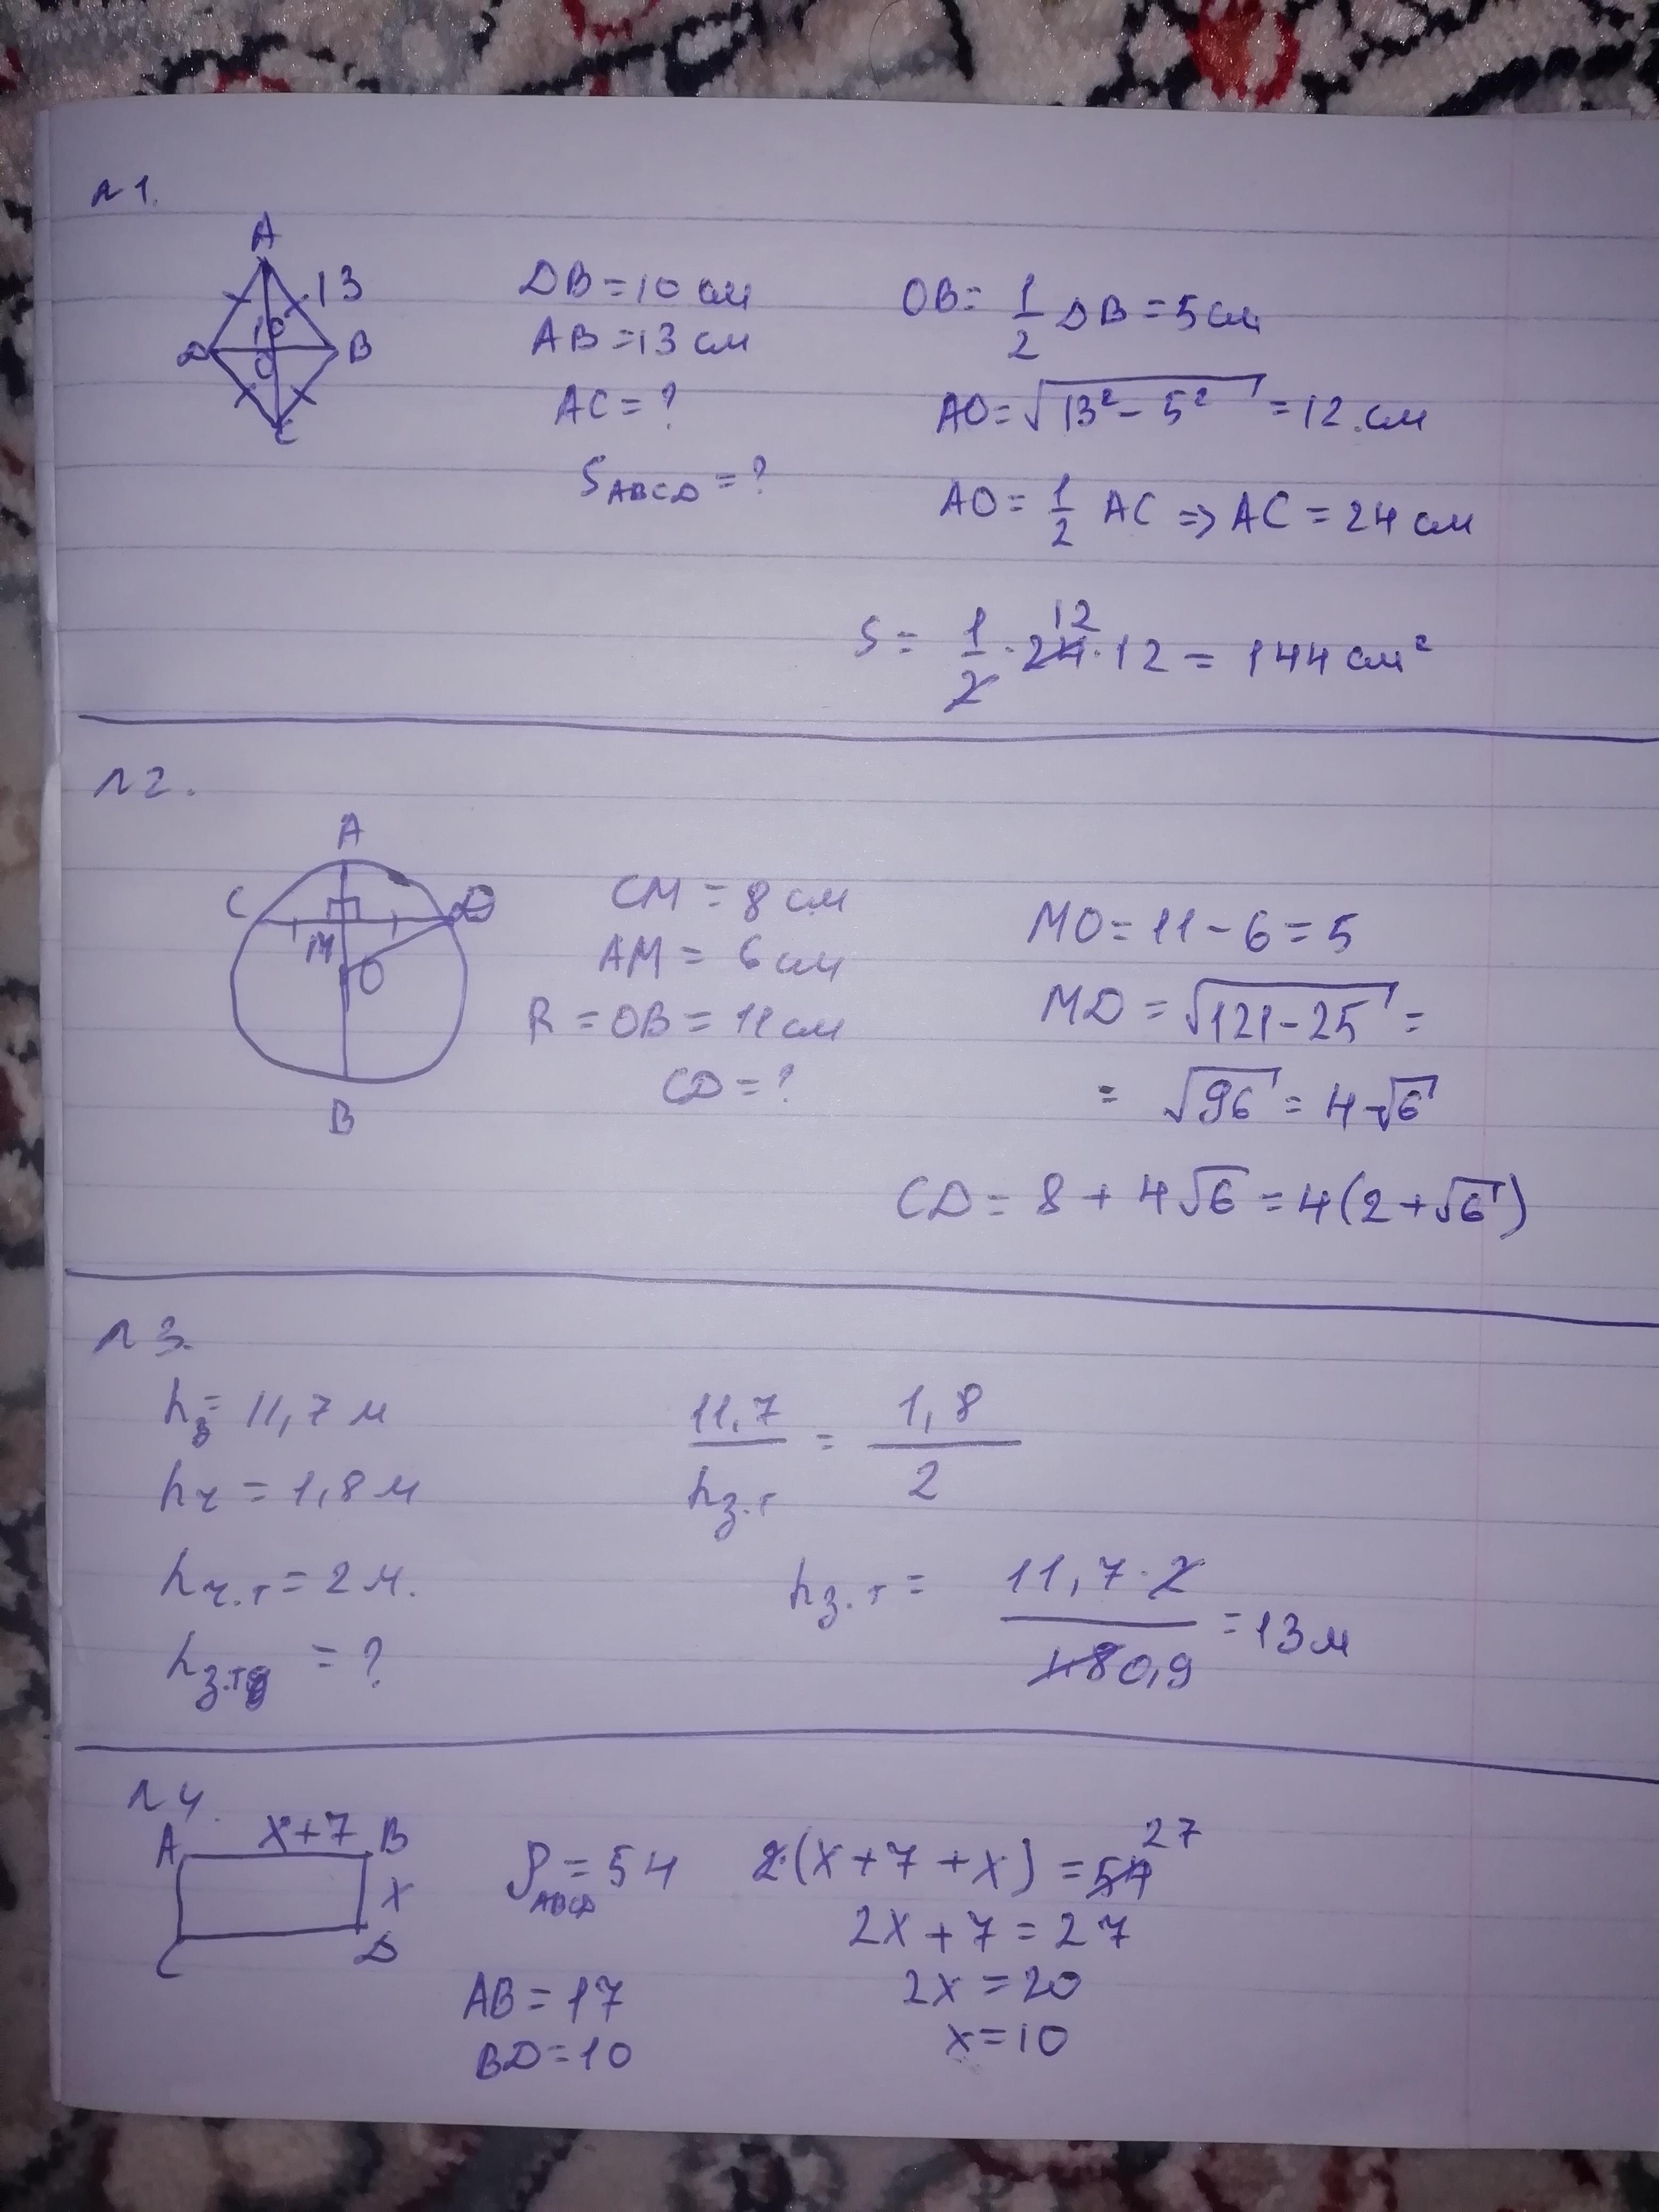 №1.
A
13
10
D O B
C
DB = 10 см
AB = 13 см
AC = ?
S ABCD = ?
OB = 1/2 DB = 5 см
AO = √(13² - 5²) = 12 см
AO = 1/2 AC => AC = 24 см
12
S = 1/2 · 24 · 12 = 144 см²
№2.
A
C D
M
O
B
CM = 8 см
AM = 6 см
R = OB = 11 см
CD = ?
MO = 11 - 6 = 5
MD = √(121 - 25) =
= √96 = 4√6
CD = 8 + 4√6 = 4(2 + √6)
№3.
hз = 11,7 м
hч = 1,8 м
hч.т = 2 м.
hз.т = ?
11,7/hз.т = 1,8/2
hз.т = 11,7 · 2 / 1,8 0,9 = 13 м
№4.
A x+7 B
x
C D
P ABCD = 54
AB = 17
BD = 10
2·(x + 7 + x) = 54 27
2x + 7 = 27
2x = 20
x = 10